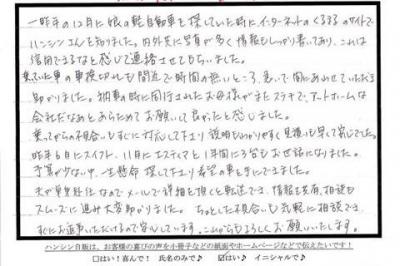 一昨年の12月に娘の軽自動車を探していた時にインターネットのくるまるのサイトで
ハンシンさんを知りました。内外共に写真が多く情報もしっかり書いてあり、これは
信用できるなと感じて連絡させてもらいました。
乗っていた車の車検切れも間近で時間の無いところ、急いで間にあわせていただき
助かりました。納車の時に同行されたお母様がまたステキで、アットホームな
会社だなぁとあらためてお願いして良かったと感じました。
乗ってからの不具合もすぐに対応して下さり説明もわかりやすく見積も早くて安心でした。
昨年6月にスイフト、11月にエスティマと1年間に3台もお世話になりました。
予算が少ない中、一生懸命探して下さり希望の車を手にできました。
夫が単身赴任なのでメールで詳細を頂くと転送でき、情報を共有、相談も
スムーズに進み大変助かりました。ちょっとした不具合も気軽に相談でき
すぐにお返事いただけるので安心です。これからもよろしくお願いいたします。
ハンシン自販は、お客様の喜びの声を小冊子などの紙面やホームページなどで伝えたいです！
□はい！喜んで！ 氏名のみで♪ ☑はい♪ イニシャルで♪